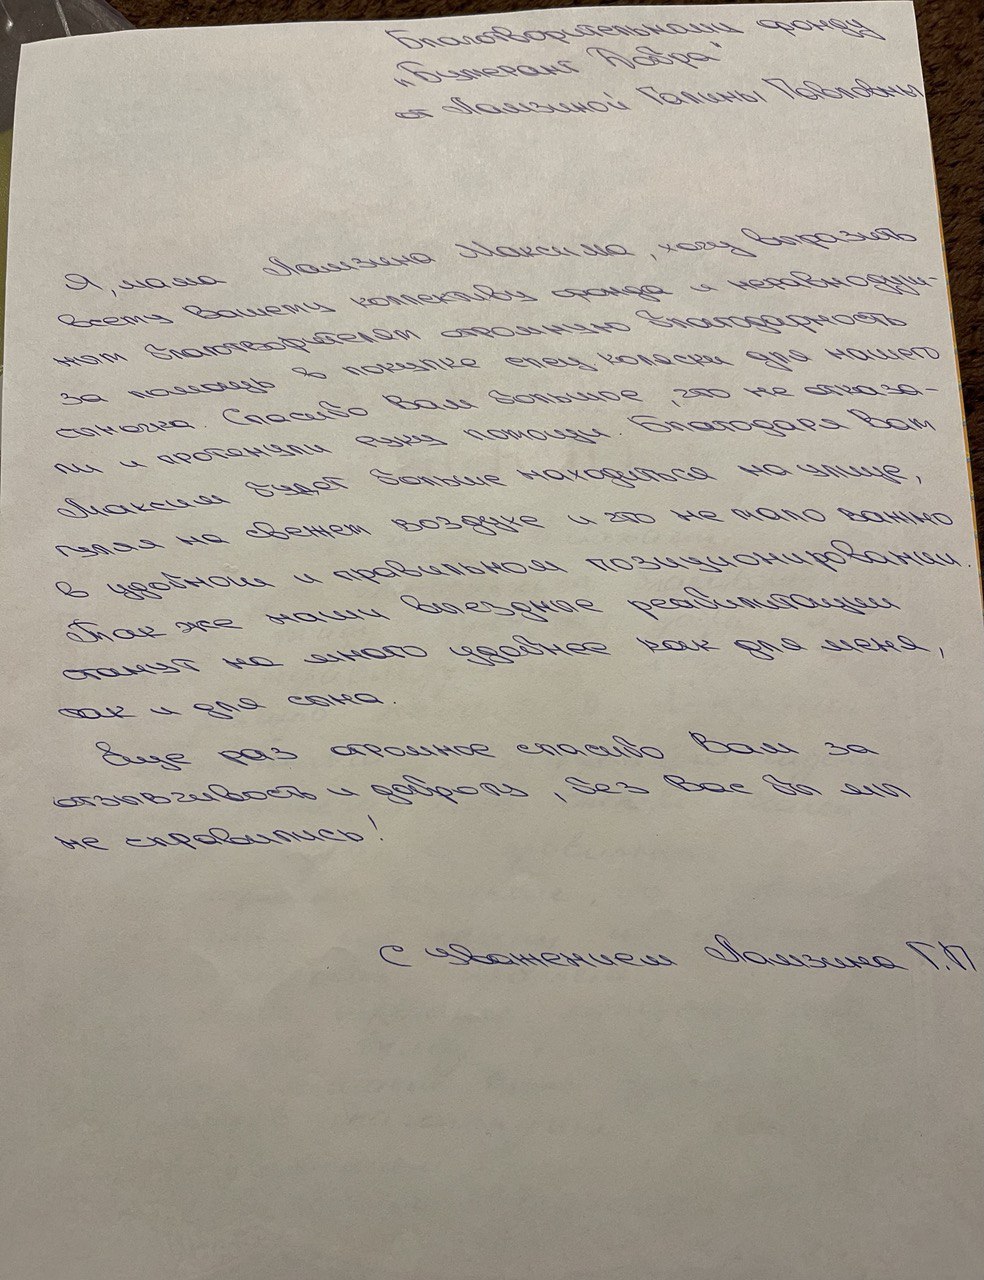 Благотворительному фонду
"Бумеранг Добра"
от Ламзиной Галины Павловны
Я, мама Ламзина Максима, хочу выразить
всему Вашему коллективу фонда и неравнодуш-
ном благотворителям огромную благодарность
за помощь в покупке спец коляски для нашего
сыночка. Спасибо Вам большое, что не отказа-
ли и протянули руку помощи. Благодаря Вам
Максим будет больше находиться на улице,
гуляя на свежем воздухе и это не мало важно
в удобном и правильном позиционировании.
Так же наши выездное реабилитации
станут на много удобнее как для меня,
так и для сына.
Еще раз огромное спасибо Вам за
отзывчивость и доброту, без Вас бы мы
не справились!
С уважением Ламзина Г.П